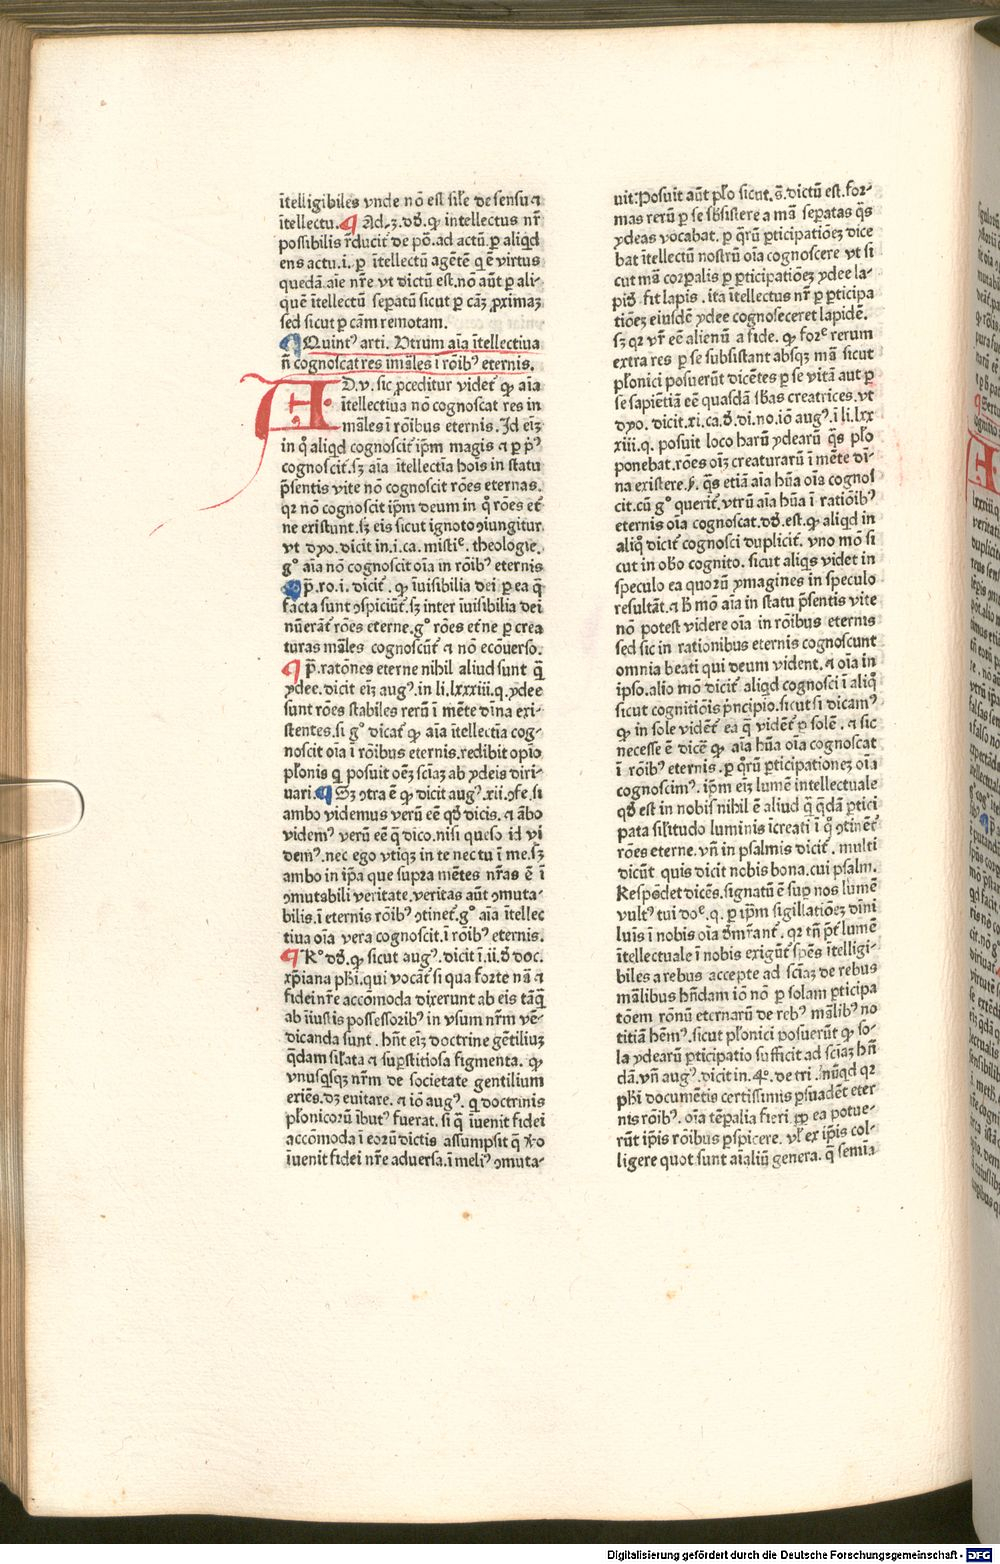 ītelligibiles vnde nō est siłe de sensu ⁊
ītellectu. ¶ Ad .3. dō. ꝙ intellectus nr̄
possibilis r̄ducit᷑ de pō. ad actū ꝑ aliqd
ens actu .i. ꝑ ītellectū agētē q̄ ē virtus
quedā aīe nr̄e vt dictū est. nō aūt ꝑ ali⸗
quē ītellectū seꝑatū sicut ꝑ cāꝫ ꝓximaꝫ
sed sicut ꝑ cām remotam.
¶ Quintꝰ arti. Vtrum aīa ītellectiua
n̄ cognoscat res imāles ī rōibꝰ eternis.
AD .v. sic ꝓceditur videt᷑ ꝙ aīa
ītellectiua nō cognoscat res in
māles ī rōibus eternis. Id eīꝫ
in qͦ aliqd cognoscit᷑ ip̄m magis ⁊ ꝑ pͥꝰ
cognoscit. sꝫ aīa ītellectīa hoīs in statu
p̄sentis vite nō cognoscit rōes eternas.
qꝛ nō cognoscit ip̄m deum in qͦ rōes et᷑
ne existunt. sꝫ eis sicut ignoto ꝯiungitur
vt dyo. dicit in .i. ca. mistiᵉ. theologie.
gͦ aīa nō cognoscit oīa in rōibꝰ eternis
¶ p̄. ro. i. dicit᷑. ꝙ īuisibilia dei ꝑ ea q̄
facta sunt ꝯspiciūt᷑. sꝫ inter īuisibilia dei
nūerāt᷑ rōes eterne. gͦ rōes et᷑ne ꝑ crea
turas māles cognoscūt᷑ ⁊ nō ecōuerso.
¶ p̄. ratōnes eterne nihil aliud sunt q̄
ydee. dicit eīꝫ augꝰ. in li. lxxxiii. q. ydee
sunt rōes stabiles rerū ī mēte dīna exi⸗
stentes. si gͦ dicat᷑ ꝙ aīa ītellectīa cog⸗
noscit oīa ī rōibus eternis. redibit opīo
płonis q̄ posuit oēꝫ sciaꝫ ab ydeis diri⸗
uari. ¶ Sꝫ ꝯtra ē ꝙ dicit augꝰ. xii. ꝯfe. si
ambo videmus verū eē qđ dicis. ⁊ ābo
videmꝰ verū eē q̄ dico. nisi queso id vi
demꝰ. nec ego vtiqꝫ in te nec tu ī me. sꝫ
ambo in ip̄a que supra mētes nr̄as ē ī
ꝯmutabili veritate. veritas aūt ꝯmuta⸗
bilis. ī eternis rōibꝰ ꝯtinet᷑. gͦ aīa ītellec
tiua oīa vera cognoscit. ī rōibꝰ eternis.
¶ Rͦ dō. ꝙ sicut augꝰ. dicit ī .ii. đ doc.
xp̄iana phī. qui vocāt᷑ si qua forte nā ⁊
fidei nr̄e accōmoda dixerunt ab eis tāꝗ̄
ab īiustis possessoribꝰ in vsum nr̄m vē⸗
dicanda sunt. hn̄t eīꝫ doctrine gētiliuꝫ
q̄dam siłata ⁊ suꝑstitiosa figmenta. ꝙ
vnusqsqꝫ nr̄m de societate gentilium
exiēs. dꝫ euitare. ⁊ iō augꝰ. q̄ doctrinis
płonicorū ībutꝰ fuerat. si q̄ īuenit fidei
accōmoda ī eorū dictis assumpsit q̄ ꝟo
īuenit fidei nr̄e aduersa. ī meliꝰ ꝯmuta⸗
uit: Posuit aūt pło sicut. s̄. dictū est. for⸗
mas rerū ꝑ se sb̄sistere a mā seꝑatas q̄s
ydeas vocabat. ꝑ q̄rū ꝑticipatiōeꝫ dice
bat ītellectū nostrū oīa cognoscere vt si
cut mā corꝑalis ꝑ ꝑticipatiōeꝫ ydee la⸗
pið fit lapis. ita ītellectus nr̄ ꝑ ꝑticipa
tiōeꝫ eiusdē ydee cognosceret lapidē.
sꝫ qꝛ vr̄ eē alienū a fide. ꝙ forᵉ rerum
extra res ꝑ se subsistant absqꝫ mā sicut
płonici posuerūt dicētes ꝑ se vitā aut ꝑ
se sapiētiā eē quasdā sb̄as creatrices. vt
dyo. dicit .xi. ca. đ. di. no. iō augꝰ. ī li. lxx
xiii. q. posuit loco harū ydearū q̄s pło
ponebat. rōes oīꝫ creaturarū ī mēte dī⸗
na existere. ẜ. q̄s etiā aīa hūa oīa cognos
cit. cū gͦ querit᷑. vtrū aīa hūa ī ratiōibꝰ
eternis oīa cognoscat. dō. est. ꝙ aliqd in
aliqͦ dicit᷑ cognosci duplicit᷑. vno mō si
cut in obo cognito. sicut aliqs videt in
speculo ea quoꝝ ymagines in speculo
resultāt. ⁊ h̄ mō aīa in statu p̄sentis vite
nō potest videre oīa in rōibus eternis
sed sic in rationibus eternis cognoscunt
omnia beati qui deum vident. ⁊ oīa in
ipso. alio mō dicit᷑ aliqd cognosci ī aliqͦ
sicut cognitiōis pͥncipio. sicut si dicamꝰ
ꝙ in sole vidēt᷑ ea q̄ vidēt᷑ ꝑ solē. ⁊ sic
necesse ē dicē ꝙ aīa hūa oīa cognoscat
ī rōibꝰ eternis. ꝑ q̄rū ꝑticipationeꝫ oīa
cognoscimꝰ. ip̄m eīꝫ lumē intellectuale
qđ est in nobis nihil ē aliud q̄ q̄dā ꝑtici
pata siłitudo luminis īcreati ī qͦ ꝯtinēt᷑
rōes eterne. vn̄ in psalmis dicit᷑. multi
dicūt quis dicit nobis bona. cui psalm.
Respōdet dicēs. signatū ē suꝑ nos lumē
vultꝰ tui doᵉ. q. ꝑ ip̄m sigillatiōeꝫ dīni
luīs ī nobis oīa đmr̄ant᷑. qꝛ tn̄ p̄t᷑ lumē
ītellectuale ī nobis exigūt᷑ sp̄es ītelligi⸗
biles a rebus accepte ad sciaꝫ de rebus
mālibus hn̄dam iō nō ꝑ solam ꝑticipa
tōem rōnū eternarū de rebꝰ mālibꝰ no
titiā hēmꝰ. sicut płonici posuerūt ꝙ so⸗
la ydearū ꝑticipatio sufficit ad sciaꝫ hn̄
dā. vn̄ augꝰ. dicit in .4ͦ. de tri. nūqd qꝛ
phī documētis certissimis ꝑsuadēt eter
nis rōibꝰ. oīa tēꝑalia fieri ꝓp ea potue⸗
rūt ip̄is rōibus ꝑspicere. vł ex ip̄is col⸗
ligere quot sunt aīaliū genera. q̄ semīa
Digitalisierung gefördert durch die Deutsche Forschungsgemeinschaft - DFG